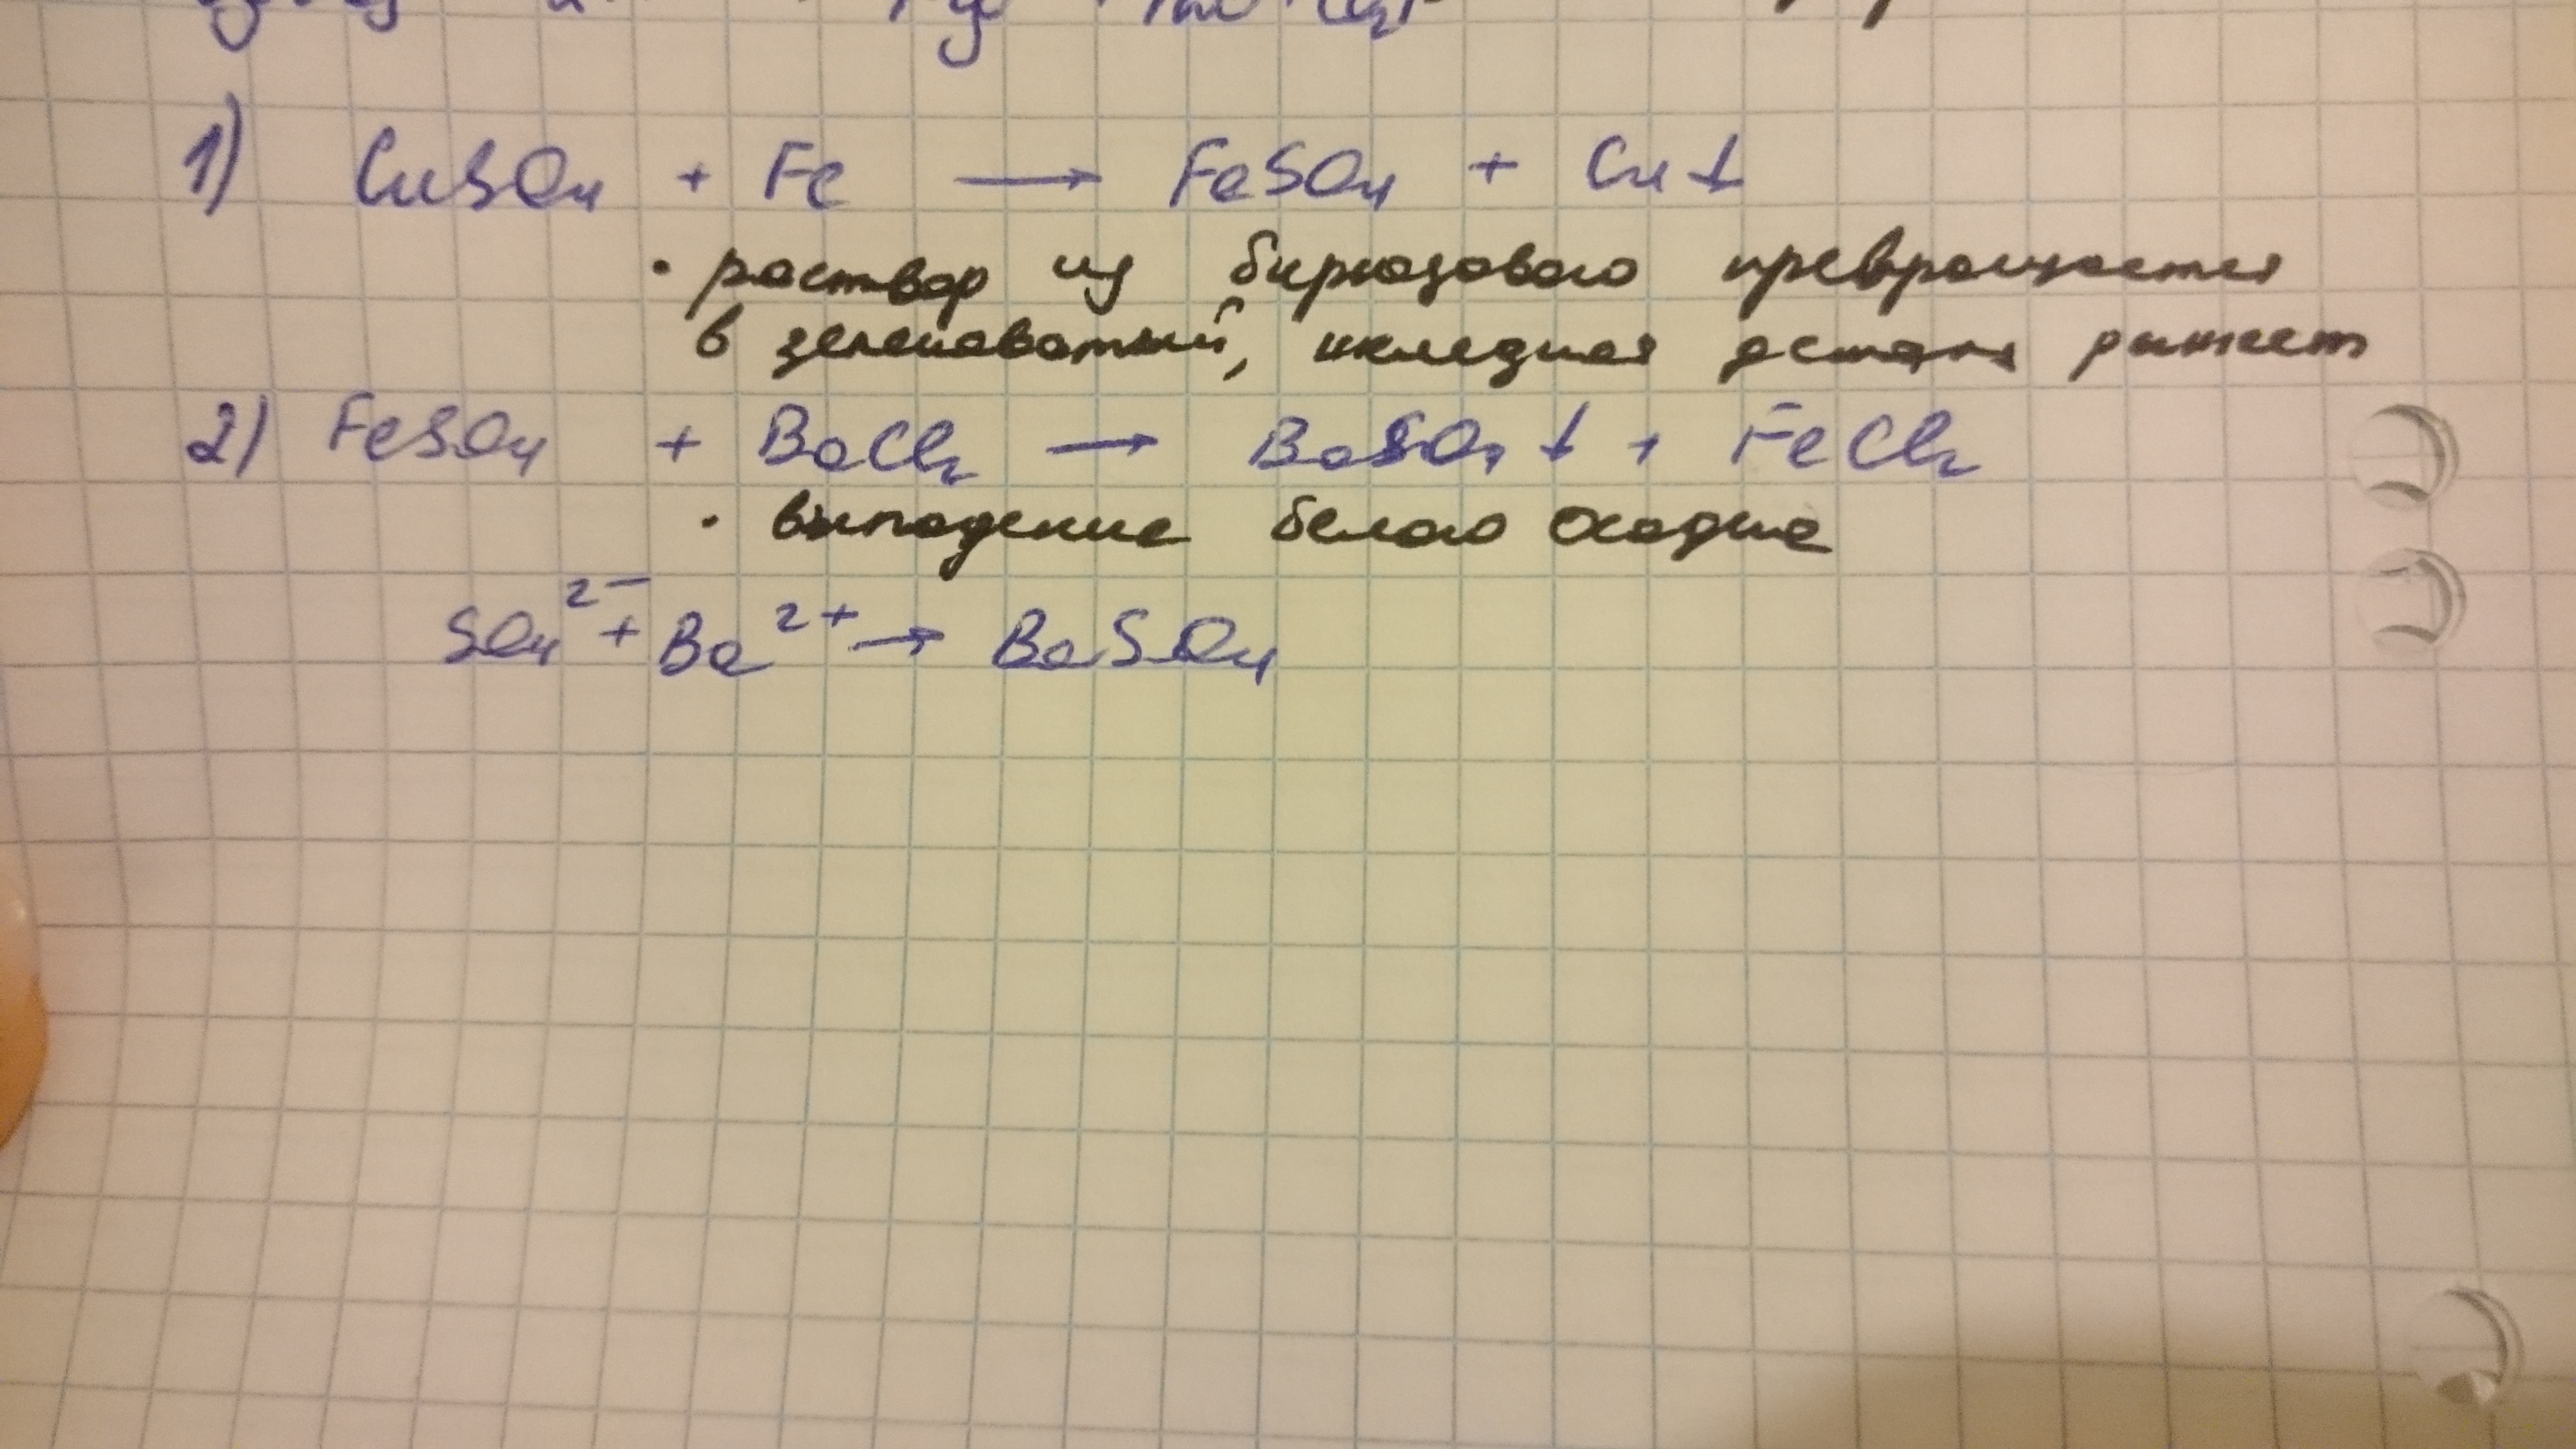 1) CuSO₄ + Fe → FeSO₄ + Cu↓
· раствор из бирюзового превращается
в зеленоватый, железная деталь рыжеет
2) FeSO₄ + BaCl₂ → BaSO₄↓ + FeCl₂
· выпадение белого осадка
SO₄²⁻ + Ba²⁺ → BaSO₄